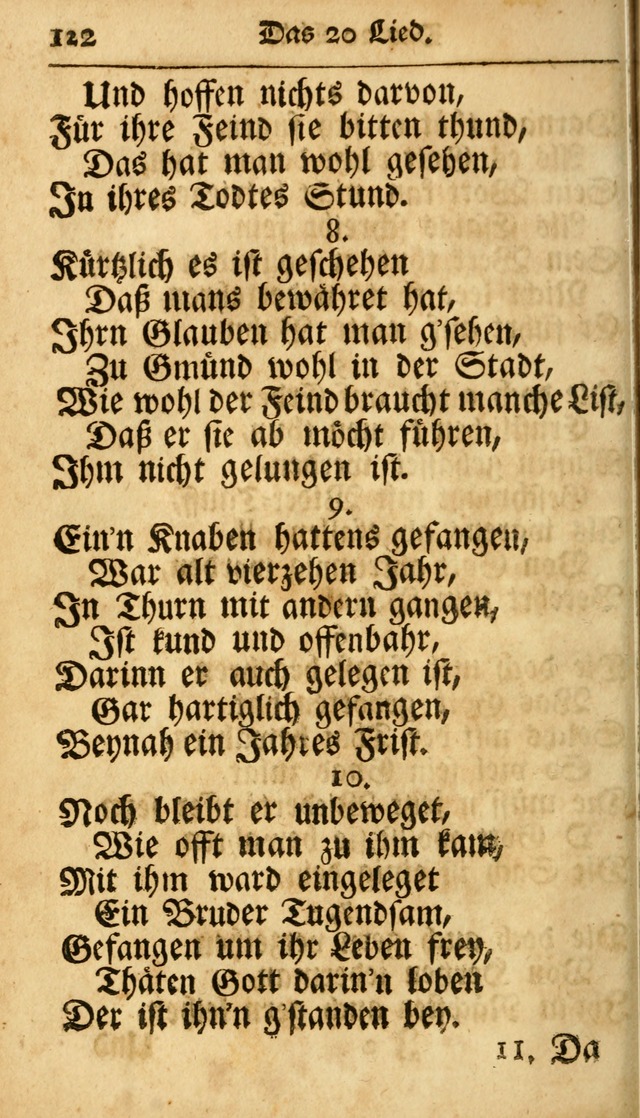 122 Das 20 Lied.
Und hoffen nichts darvon,
Für ihre Feind sie bitten thund,
Das hat man wohl gesehen,
In ihres Todtes Stund.
8.
Kürtzlich es ist geschehen
Daß mans bewähret hat,
Ihrn Glauben hat man g'sehen,
Zu Gmünd wohl in der Stadt,
Wie wohl der Feind braucht manche List,
Daß er sie ab möcht führen,
Ihm nicht gelungen ist.
9.
Ein'n Knaben hattens gefangen,
War alt vierzehen Jahr,
In Thurn mit andern gangen,
Ist kund und offenbahr,
Darinn er auch gelegen ist,
Gar hartiglich gefangen,
Beynah ein Jahres Frist.
10.
Noch bleibt er unbeweget,
Wie offt man zu ihm kam,
Mit ihm ward eingeleget
Ein Bruder Tugendsam,
Gefangen um ihr Leben frey,
Thäten Gott darin'n loben
Der ist ihn'n g'standen bey.
11, Da